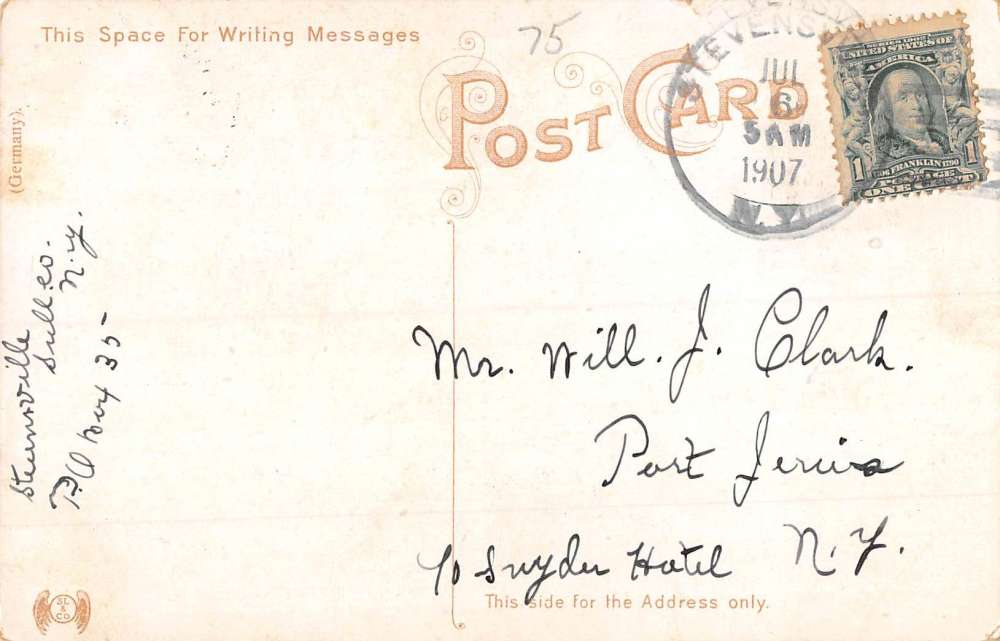 This Space For Writing Messages
75
POST CARD
STEVENSVILLE
JUL
6
5 AM
1907
N.Y.
SERIES 1902
UNITED STATES OF
AMERICA
1706 FRANKLIN 1790
1 POSTAGE 1
ONE CENT
(Germany).
Stevensville
Sull. Co.
N. Y.
P.O Box 35
Mr. Will. J. Clark.
Port Jervis
N. Y.
c/o Snyder Hotel
This side for the Address only.
SL
&
CO